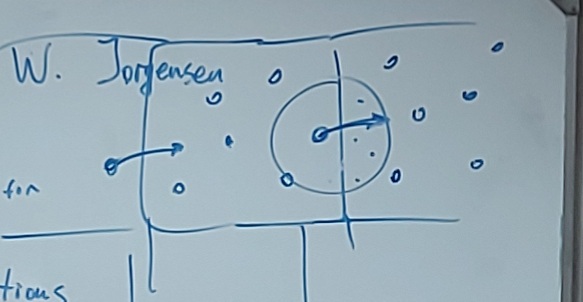 W. Jorgensen
for
tions